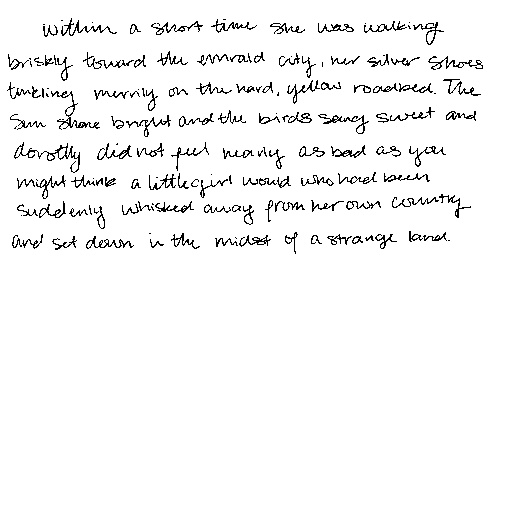 within a short time she was walking
briskly toward the emrald city, her silver shoes
tinkling merrily on the hard, yellow roadbed. The
sun shone bright and the birds sang sweet and
dorothy did not feel nearly as bad as you
might think a little girl would who had been
suddenly whisked away from her own country
and set down in the midst of a strange land.